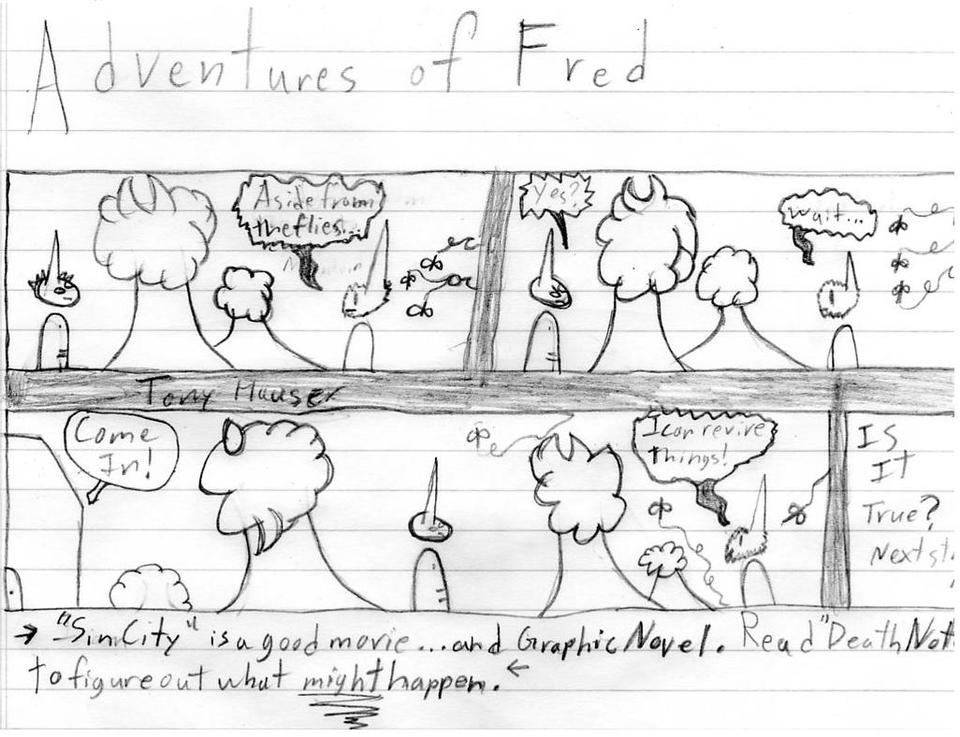 Adventures of Fred
Aside from
the flies...
Yes?
Wait...
Tony Hauser
Come
In!
I can revive
things!
Is
It
True?
Next st
→ "Sin City" is a good movie...and Graphic Novel. Read "Death Not
to figure out what might happen. ←